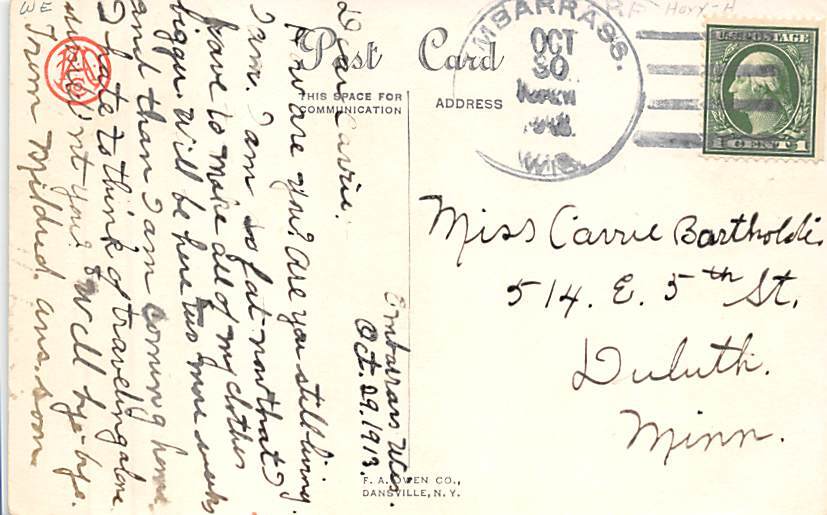 WE
RF Hoyx-H
Post Card
THIS SPACE FOR
COMMUNICATION
ADDRESS
EMBARRASS.
OCT
30
WIS.
U.S. POSTAGE
1 CENT 1
Embarrass Wis.
Oct. 29. 1913.
Dear Carrie:
How are you? Are you still living
I am. I am so fat now that I
have to make all of my clothes
bigger. Will be here two more weeks
and than I am coming home.
I hate to think of traveling alone
would'nt you? Well bye-bye.
From Mildred. ans. soon.
Miss Carrie Bartholdi
514. E. 5th St.
Duluth.
Minn.
F. A. OWEN CO.,
DANSVILLE, N. Y.